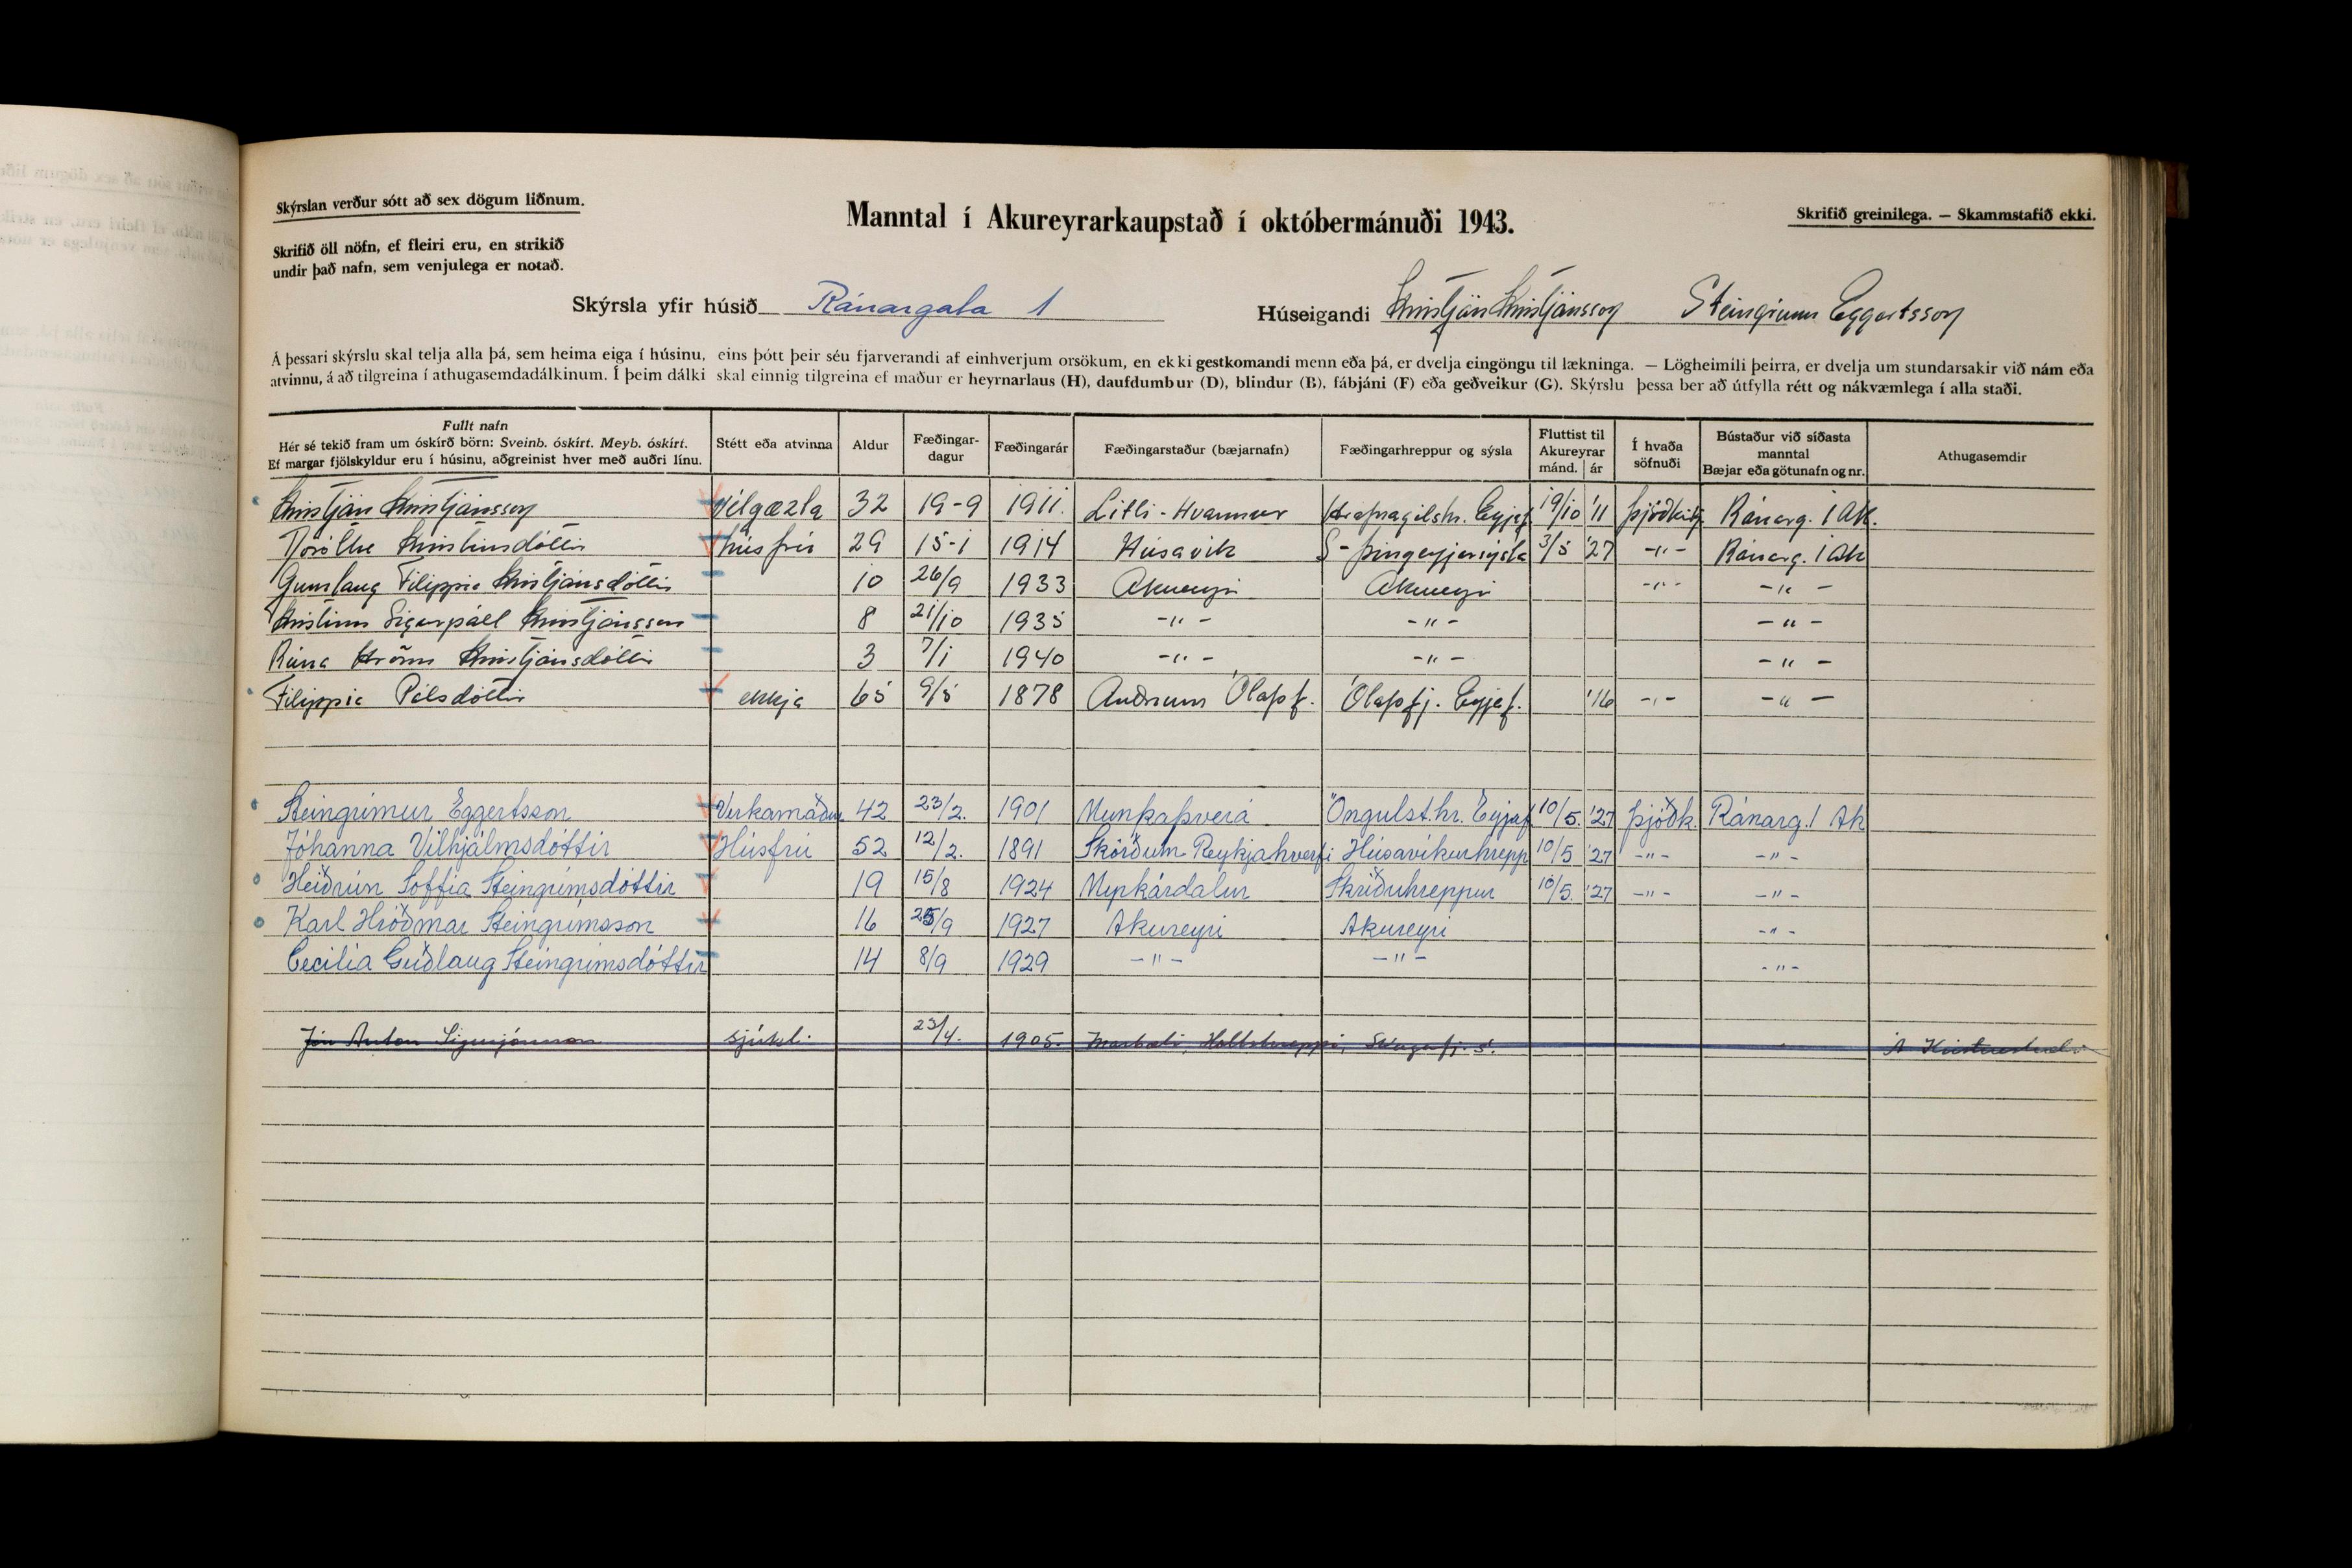 Skýrslan verður sótt að sex dögum liðnum.
Manntal í Akureyrarkaupstað í októbermánuði 1943.
Skrifið greinilega. — Skammstafið ekki.
Skrifið öll nöfn, ef fleiri eru, en strikið
undir það nafn, sem venjulega er notað.
Skýrsla yfir húsið Ránargata 1 Húseigandi Kristján Kristjánsson Steingrímur Eggertsson
Á þessari skýrslu skal telja alla þá, sem heima eiga í húsinu, eins þótt þeir séu fjarverandi af einhverjum orsökum, en ekki gestkomandi menn eða þá, er dvelja eingöngu til lækninga. — Lögheimili þeirra, er dvelja um stundarsakir við nám eða
atvinnu, á að tilgreina í athugasemdadálkinum. Í þeim dálki skal einnig tilgreina ef maður er heyrnarlaus (H), daufdumbur (D), blindur (B), fábjáni (F) eða geðveikur (G). Skýrslu þessa ber að útfylla rétt og nákvæmlega í alla staði.
Fullt nafn
Hér sé tekið fram um óskírð börn: Sveinb. óskírt. Meyb. óskírt.
Ef margar fjölskyldur eru í húsinu, aðgreinist hver með auðri línu.
Stétt eða atvinna
Aldur
Fæðingar-
dagur
Fæðingarár
Fæðingarstaður (bæjarnafn)
Fæðingarhreppur og sýsla
Fluttist til
Akureyrar
mánd. | ár
Í hvaða
söfnuði
Bústaður við síðasta
manntal
Bæjar eða götunafn og nr.
Athugasemdir
Kristján Kristjánsson Vélgæzla 32 19-9 1911 Litli-Hvammur Hrafnagilshr. Eyjaf 19/10 '11 þjóðkirkj. Ránarg. 1 Ak.
Dórothe Kristinsdóttir húsfrú 29 15-1 1914 Húsavík S-þingeyjarsýsla 3/5 '27 -"- Ránarg. 1 Ak
Gunnlaug Filippía Kristjánsdóttir 10 26/9 1933 Akureyri Akureyri -"- -"-
Kristinn Sigurpáll Kristjánsson 8 21/10 1935 -"- -"- -"-
Rúna Hrönn Kristjánsdóttir 3 7/1 1940 -"- -"- -"-
Filippía Pálsdóttir ekkja 65 9/5 1878 Auðnum Ólafsf. Ólafsfj. Eyjaf. '16 -"- -"-
Steingrímur Eggertsson Verkamaður 42 23/2. 1901 Munkaþverá Öngulst.hr. Eyjaf 10/5. '27 þjóðk. Ránarg. 1 Ak
Jóhanna Vilhjálmsdóttir Húsfrú 52 12/2. 1891 Skörðum Reykjahverfi Húsavíkurhrepp 10/5 '27 -"- -"-
Heiðrún Soffía Steingrímsdóttir 19 15/8 1924 Myrkárdalur Skriðuhreppur 10/5. '27 -"- -"-
Karl Hróðmar Steingrímsson 16 25/9 1927 Akureyri Akureyri -"-
Cecilía Guðlaug Steingrímsdóttir 14 8/9 1929 -"- -"- -"-
Jón Anton Sigurjónsson sjúkl. 23/4. 1905. Holtshreppi, Skagafj.s. Á